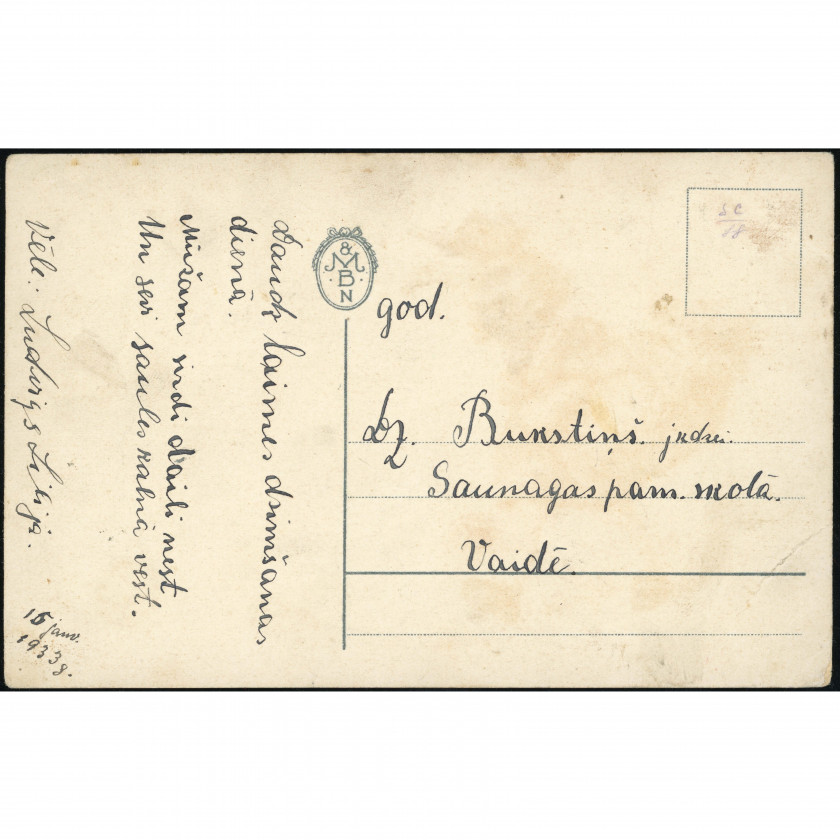 Daudz laimes dzimšanas
dienā.
Mūžam sirdi daili nest
Un sevi saules kalnā vest.
Vēl: Ludvigs Lilija.
15 janv.
1933g.
& M B N
god.
Dz. Bukstiņš. jkdzei.
Saunagas pam. skolā.
Vaidē.